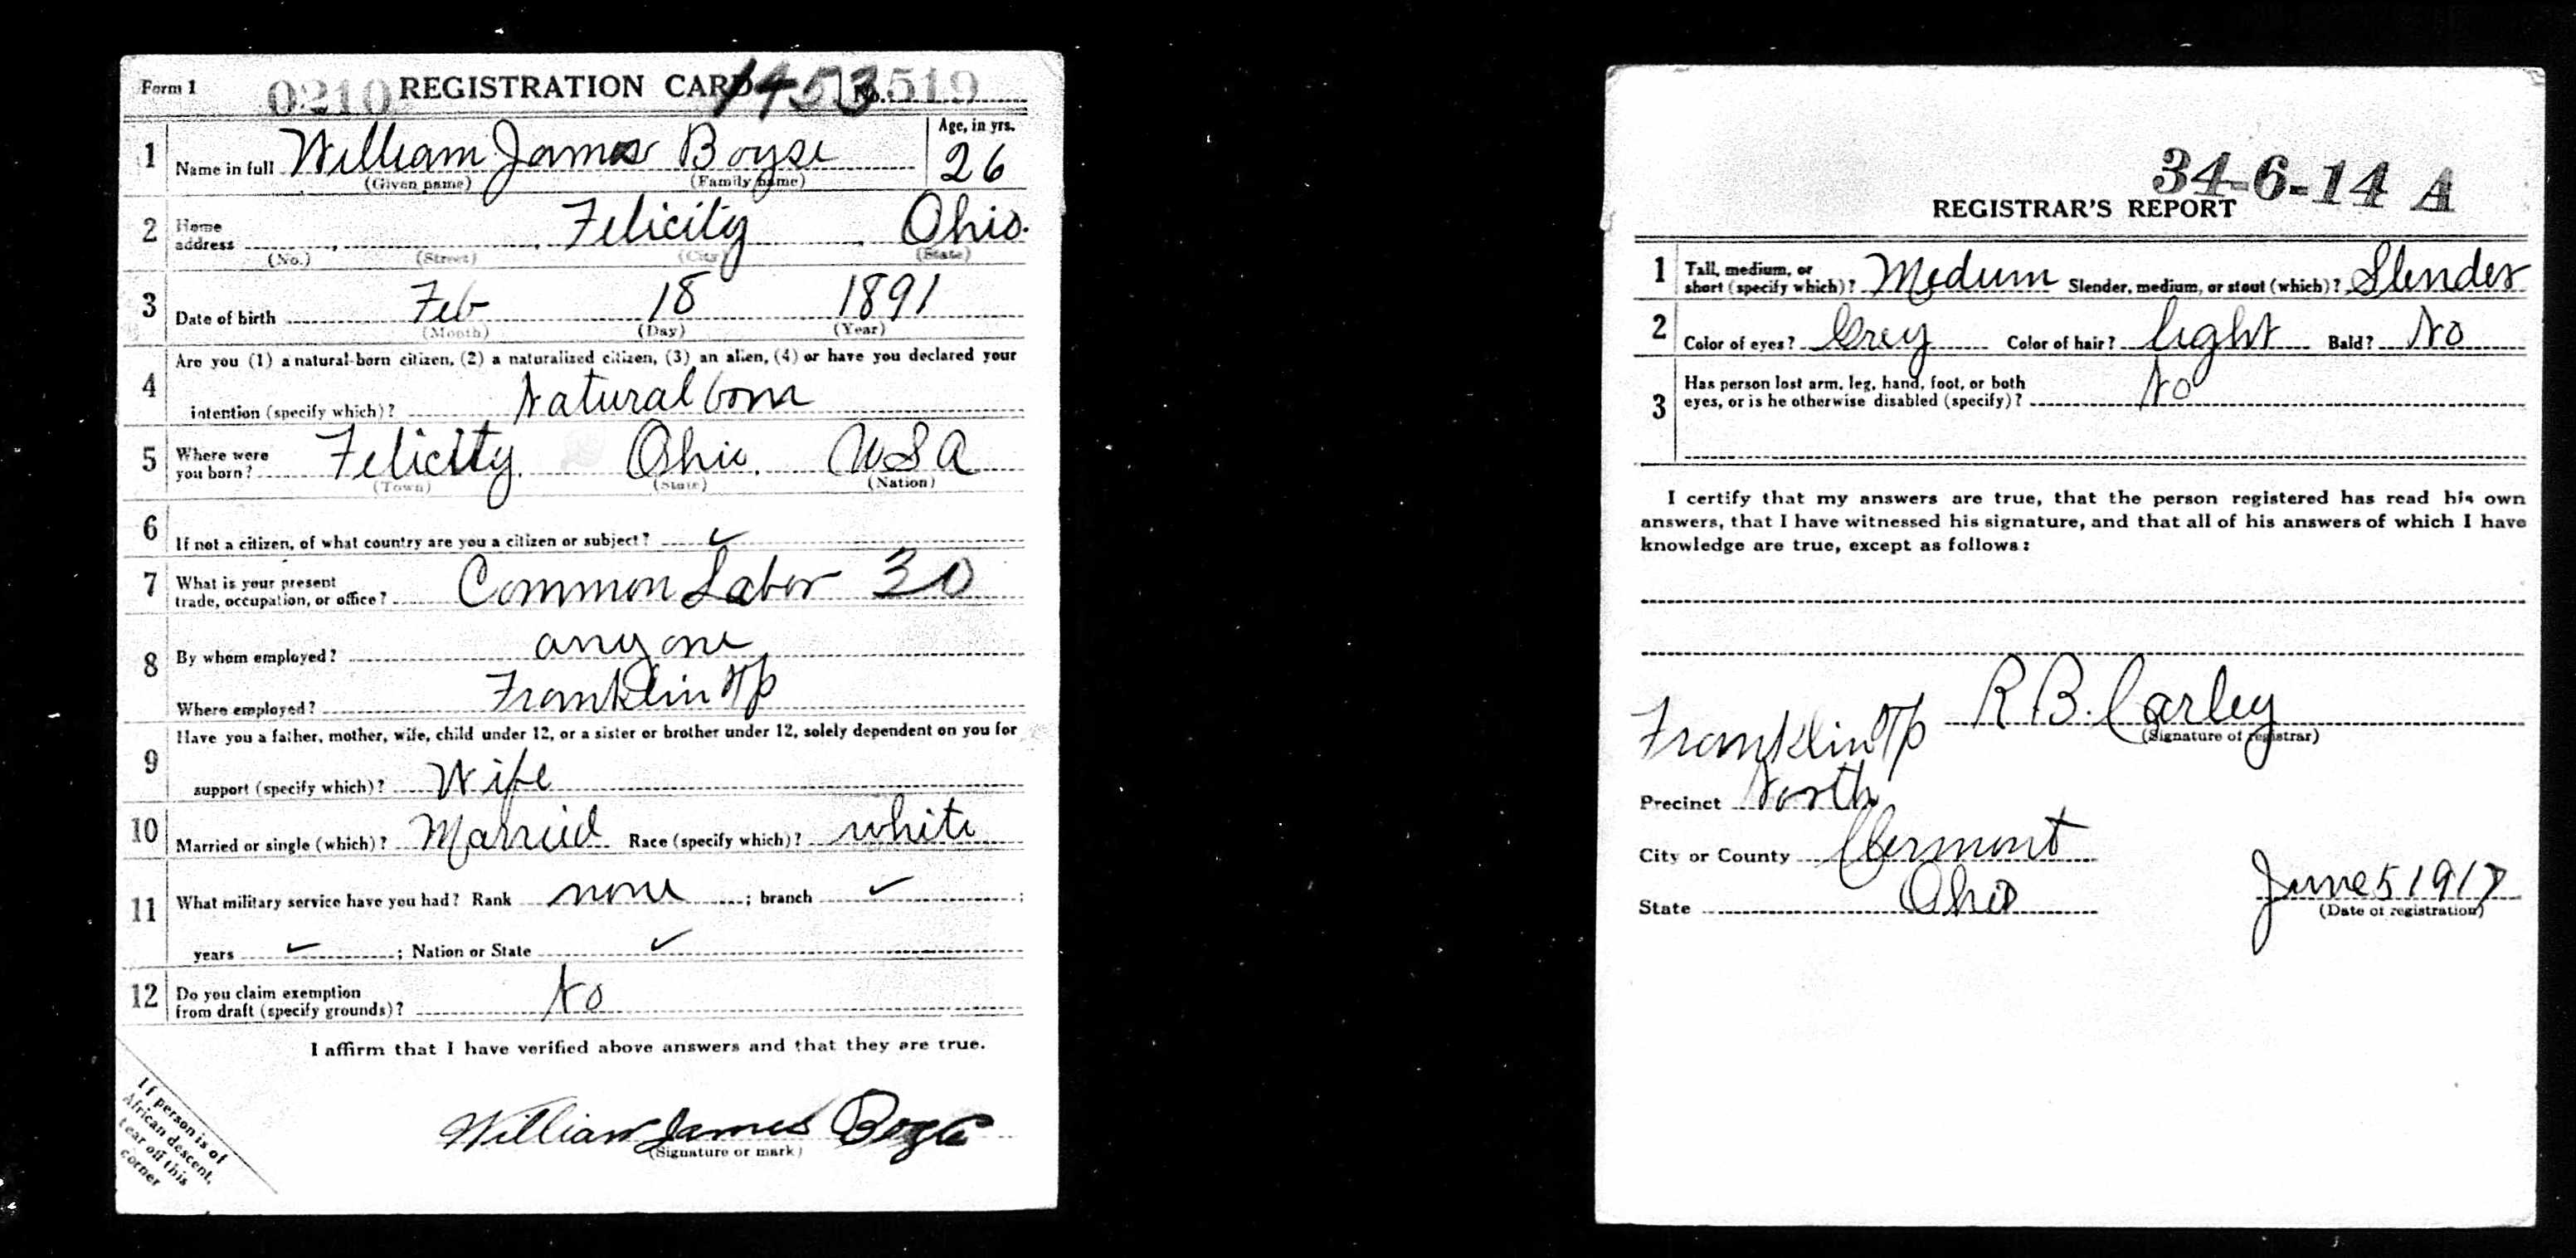 Form 1 0210 REGISTRATION CARD 1453 No. 519
1 Name in full William James Boyse Age, in yrs. 26
(Given name) (Family name)
2 Home address Felicity Ohio.
(No.) (Street) (City) (State)
3 Date of birth Feb 18 1891
(Month) (Day) (Year)
4 Are you (1) a natural-born citizen, (2) a naturalized citizen, (3) an alien, (4) or have you declared your
intention (specify which)? Natural born
5 Where were you born? Felicity. Ohio. USA
(Town) (State) (Nation)
6 If not a citizen, of what country are you a citizen or subject? ✓
7 What is your present trade, occupation, or office? Common Labor 30
8 By whom employed? any one
Where employed? Franklin Tp
9 Have you a father, mother, wife, child under 12, or a sister or brother under 12, solely dependent on you for
support (specify which)? Wife
10 Married or single (which)? Married Race (specify which)? white
11 What military service have you had? Rank none ; branch ✓ ;
years ✓ ; Nation or State ✓
12 Do you claim exemption from draft (specify grounds)? No
I affirm that I have verified above answers and that they are true.
William James Boyse
(Signature or mark)
If person is of
African descent,
tear off this
corner
34-6-14 A
REGISTRAR'S REPORT
1 Tall, medium, or short (specify which)? Medum Slender, medium, or stout (which)? Slender
2 Color of eyes? Grey Color of hair? light Bald? No
3 Has person lost arm, leg, hand, foot, or both eyes, or is he otherwise disabled (specify)? No
I certify that my answers are true, that the person registered has read his own
answers, that I have witnessed his signature, and that all of his answers of which I have
knowledge are true, except as follows:
R B. Carley
(Signature of registrar)
Franklin Tp
Precinct North
City or County Clermont
State Ohio June 5 1917
(Date of registration)